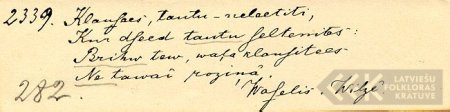 2339. Klausees, tautu-neleetiti,
Kur dseed tautu seltenite:
Brihw tew, wasa klausitees
Ne tawai roziņâ.
282.
LATVIEŠU
FOLKLORAS
KRĀTUVE